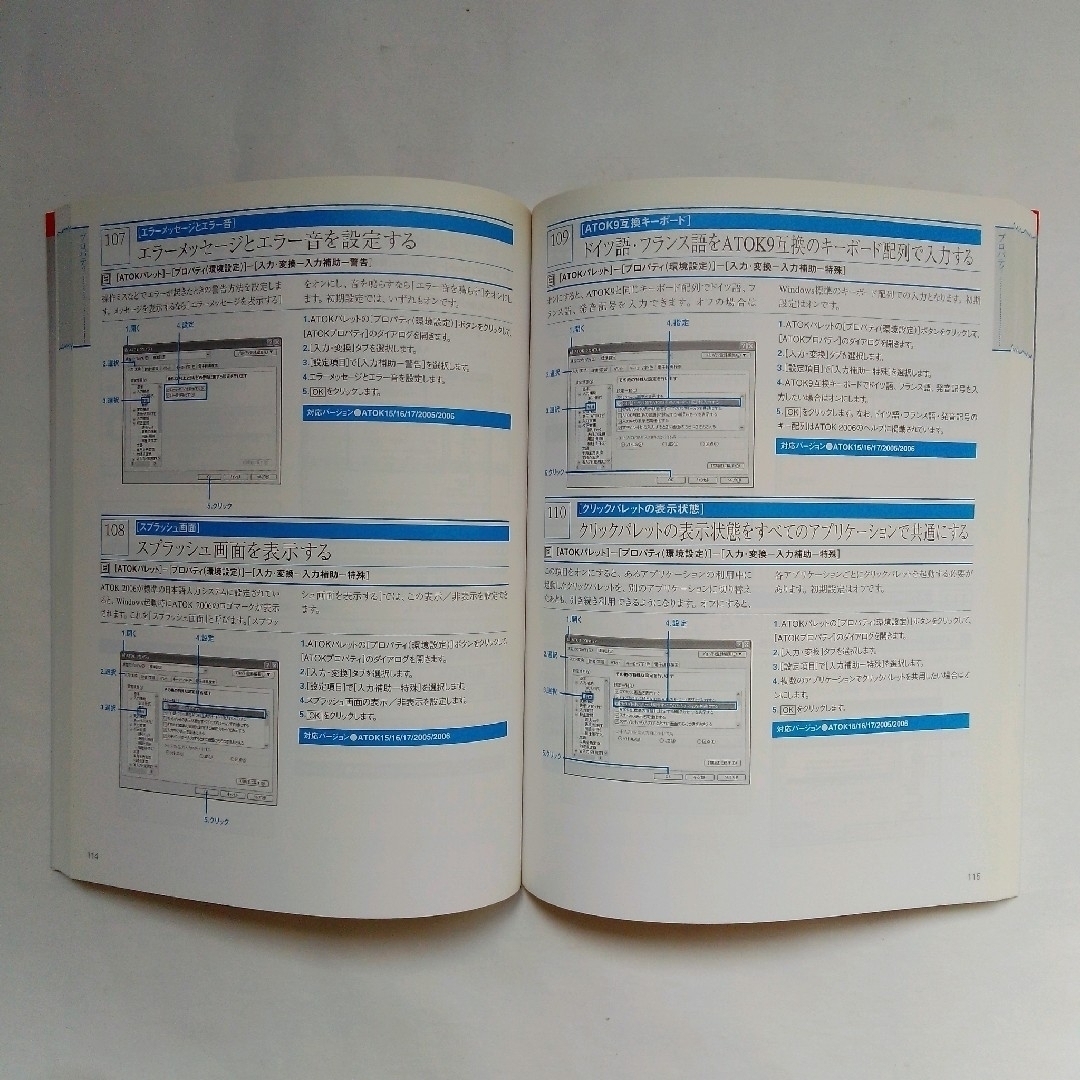 プロパティ
107
[エラーメッセージとエラー音]
エラーメッセージとエラー音を設定する
[ATOKパレット]−[プロパティ(環境設定)]−[入力・変換−入力補助−警告]
操作ミスなどでエラーが起きたときの警告方法を設定しま
す。メッセージを表示するなら[エラーメッセージを表示する]
をオンにし、音を鳴らすなら[エラー音を鳴らす]をオンにし
ます。初期設定では、いずれもオンです。
1.開く
4.設定
2.選択
3.選択
5.クリック
1.ATOKパレットの[プロパティ(環境設定)]ボタンをクリックして、
[ATOKプロパティ]のダイアログを開きます。
2.[入力・変換]タブを選択します。
3.[設定項目]で[入力補助−警告]を選択します。
4.エラーメッセージとエラー音を設定します。
5.[OK]をクリックします。
対応バージョン●ATOK15/16/17/2005/2006
108
[スプラッシュ画面]
スプラッシュ画面を表示する
[ATOKパレット]−[プロパティ(環境設定)]−[入力・変換−入力補助−特殊]
ATOK 2006が標準の日本語入力システムに設定されてい
ると、Windows起動時にATOK 2006のロゴマークが表示
されます。これを[スプラッシュ画面]と呼びます。[スプラッ
シュ画面を表示する]では、この表示/非表示を設定でき
ます。
1.開く
4.設定
2.選択
3.選択
5.クリック
1.ATOKパレットの[プロパティ(環境設定)]ボタンをクリックして、
[ATOKプロパティ]のダイアログを開きます。
2.[入力・変換]タブを選択します。
3.[設定項目]で[入力補助−特殊]を選択します。
4.スプラッシュ画面の表示/非表示を設定します。
5.[OK]をクリックします。
対応バージョン●ATOK15/16/17/2005/2006
114
プロパティ
109
[ATOK9互換キーボード]
ドイツ語・フランス語をATOK9互換のキーボード配列で入力する
[ATOKパレット]−[プロパティ(環境設定)]−[入力・変換−入力補助−特殊]
オンにすると、ATOK9と同じキーボード配列でドイツ語、フ
ランス語、発音記号を入力できます。オフの場合は
Windows標準のキーボード配列での入力となります。初期
設定はオンです。
1.開く
4.設定
2.選択
3.選択
5.クリック
1.ATOKパレットの[プロパティ(環境設定)]ボタンをクリックして、
[ATOKプロパティ]のダイアログを開きます。
2.[入力・変換]タブを選択します。
3.[設定項目]で[入力補助−特殊]を選択します。
4.ATOK9互換キーボードでドイツ語、フランス語、発音記号を入
力したい場合はオンにします。
5.[OK]をクリックします。なお、ドイツ語・フランス語・発音記号の
キー配列はATOK 2006のヘルプに掲載されています。
対応バージョン●ATOK15/16/17/2005/2006
110
[クリックパレットの表示状態]
クリックパレットの表示状態をすべてのアプリケーションで共通にする
[ATOKパレット]−[プロパティ(環境設定)]−[入力・変換−入力補助−特殊]
この項目をオンにすると、あるアプリケーションの利用中に
起動したクリックパレットを、別のアプリケーションに切り替え
たあとも、引き続き利用できるようになります。オフにすると、
各アプリケーションごとにクリックパレットを起動する必要が
あります。初期設定はオフです。
1.開く
4.設定
2.選択
3.選択
5.クリック
1.ATOKパレットの[プロパティ(環境設定)]ボタンをクリックして、
[ATOKプロパティ]のダイアログを開きます。
2.[入力・変換]タブを選択します。
3.[設定項目]で[入力補助−特殊]を選択します。
4.複数のアプリケーションでクリックパレットを共用したい場合はオ
ンにします。
5.[OK]をクリックします。
対応バージョン●ATOK15/16/17/2005/2006
115